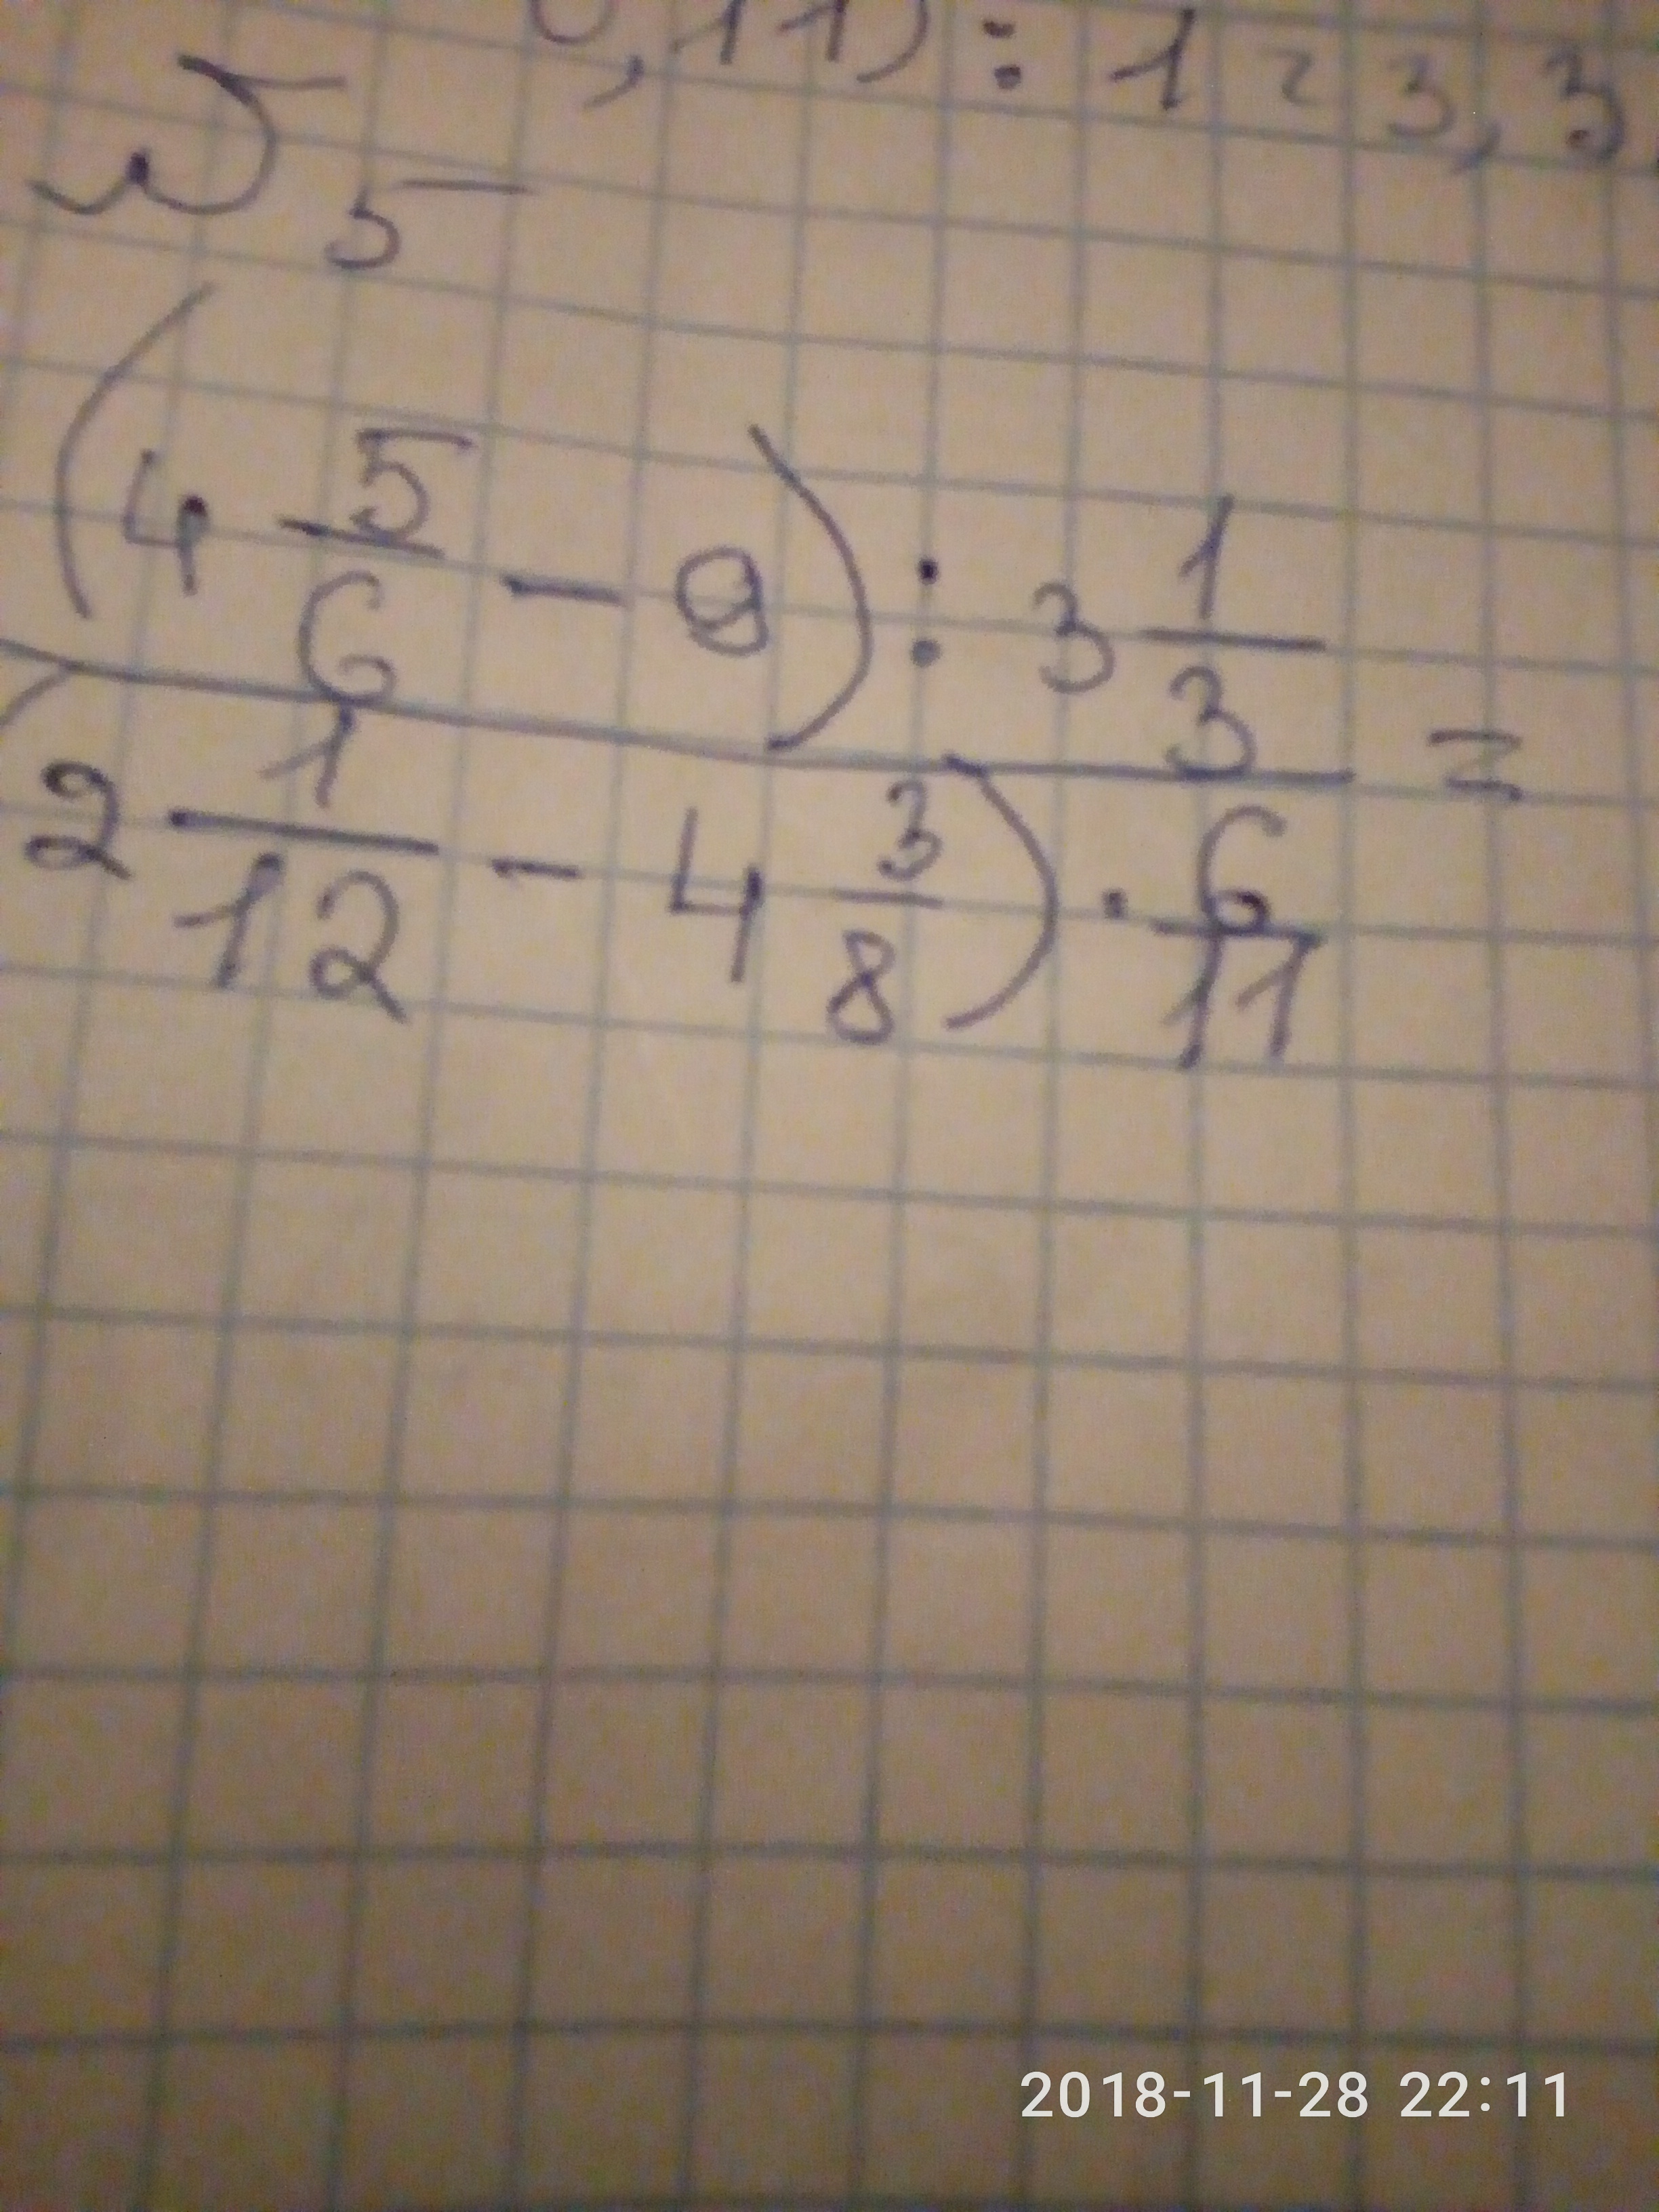 ,11) : 1 = 3,3
№ 5
(4 5/6 - 9) : 3 1/3
=
2 1/12 - 4 3/8) · 6/11
2018-11-28 22:11